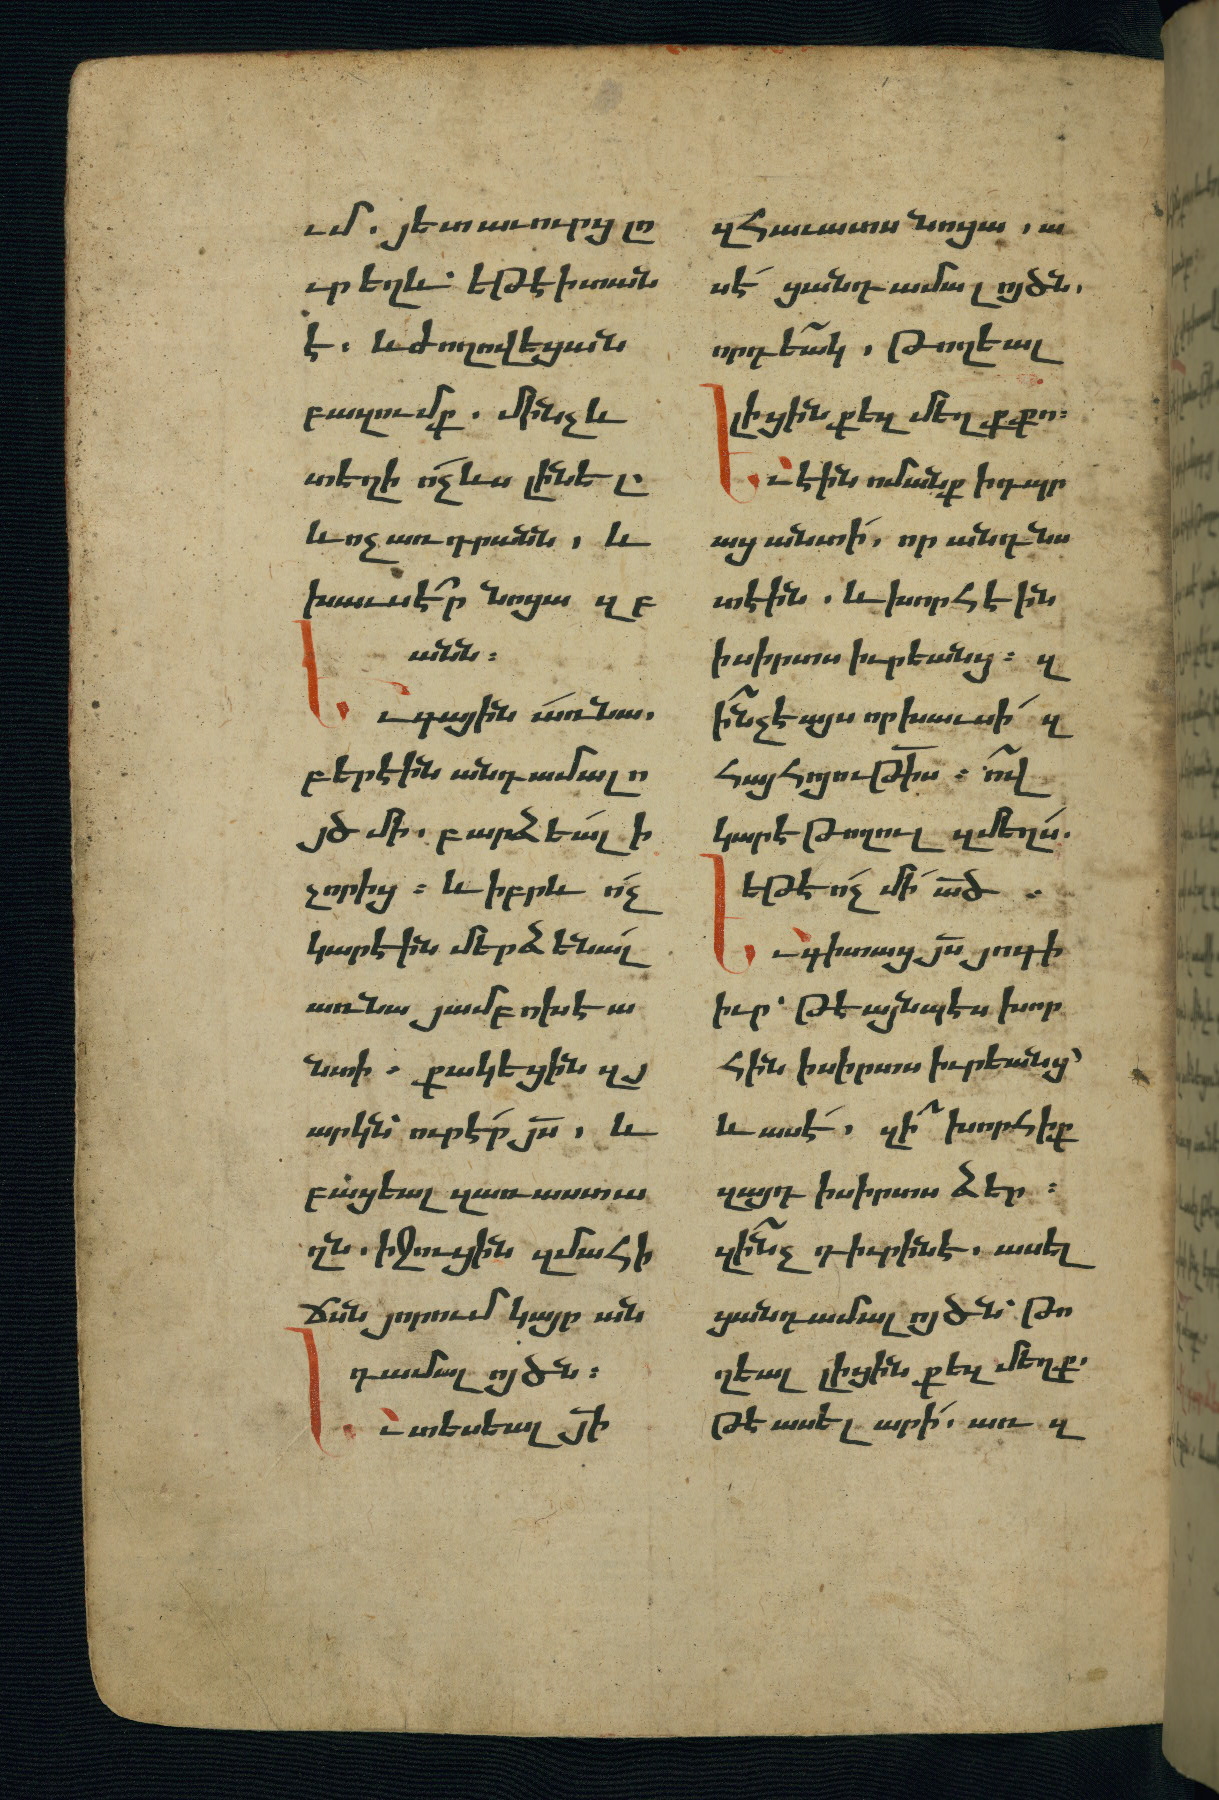 ւմ. յետ աւուրց լո
ւր եղև՝ եթէ ի տան
է. և ժողովեցան
բազումք. մինչև
տեղի ո՛չ ևս լինել.
և ոչ առ դրանն, և
խաւսէ՛ր նոցա զբ
անն։
Եւ գային առ նա.
բերէին անդամալո
յծ մի. բարձեալ ի
չորից։ և իբրև ո՛չ
կարէին մերձենալ
առ նա յամբոխէ ա
նտի. քակեցին զյ
արկն՝ ուր է՛ր յս̅, և
բացեալ զառաստա
ղն. իջուցին զմահի
ճսն յորում կայր ան
դամալոյծն։
Եւ տեսեալ յի̅
զհաւատս նոցա, ա
սէ՛ ցանդամալոյծն.
որդեա՛կ, թողեալ
լիցին քեզ մեղք քո։
Եւ էին ոմանք ի դպր
աց անտի. որ անդ նս
տէին. և խորհէին
ի սիրտս իւրեանց։ զ
ի՞նչ է այս որ խաւսի՛ զ
հայհոյութի̅ս։ ո՞վ
կարէ թողուլ զմեղս.
եթէ ո՛չ մի՛ ած̅.
Եւ գիտաց յս̅ յոգի
իւր՝ թէ այնպէս խոր
հին ի սիրտս իւրեանց՝
և ասէ՛. զի՞ խորհիք
զայդ ի սիրտս ձեր։
զի՞նչ դիւրին է. ասել
ցանդամալոյծն՝ թո
ղեալ լիցին քեզ մեղք.
թէ ասել արի՛. առ զ